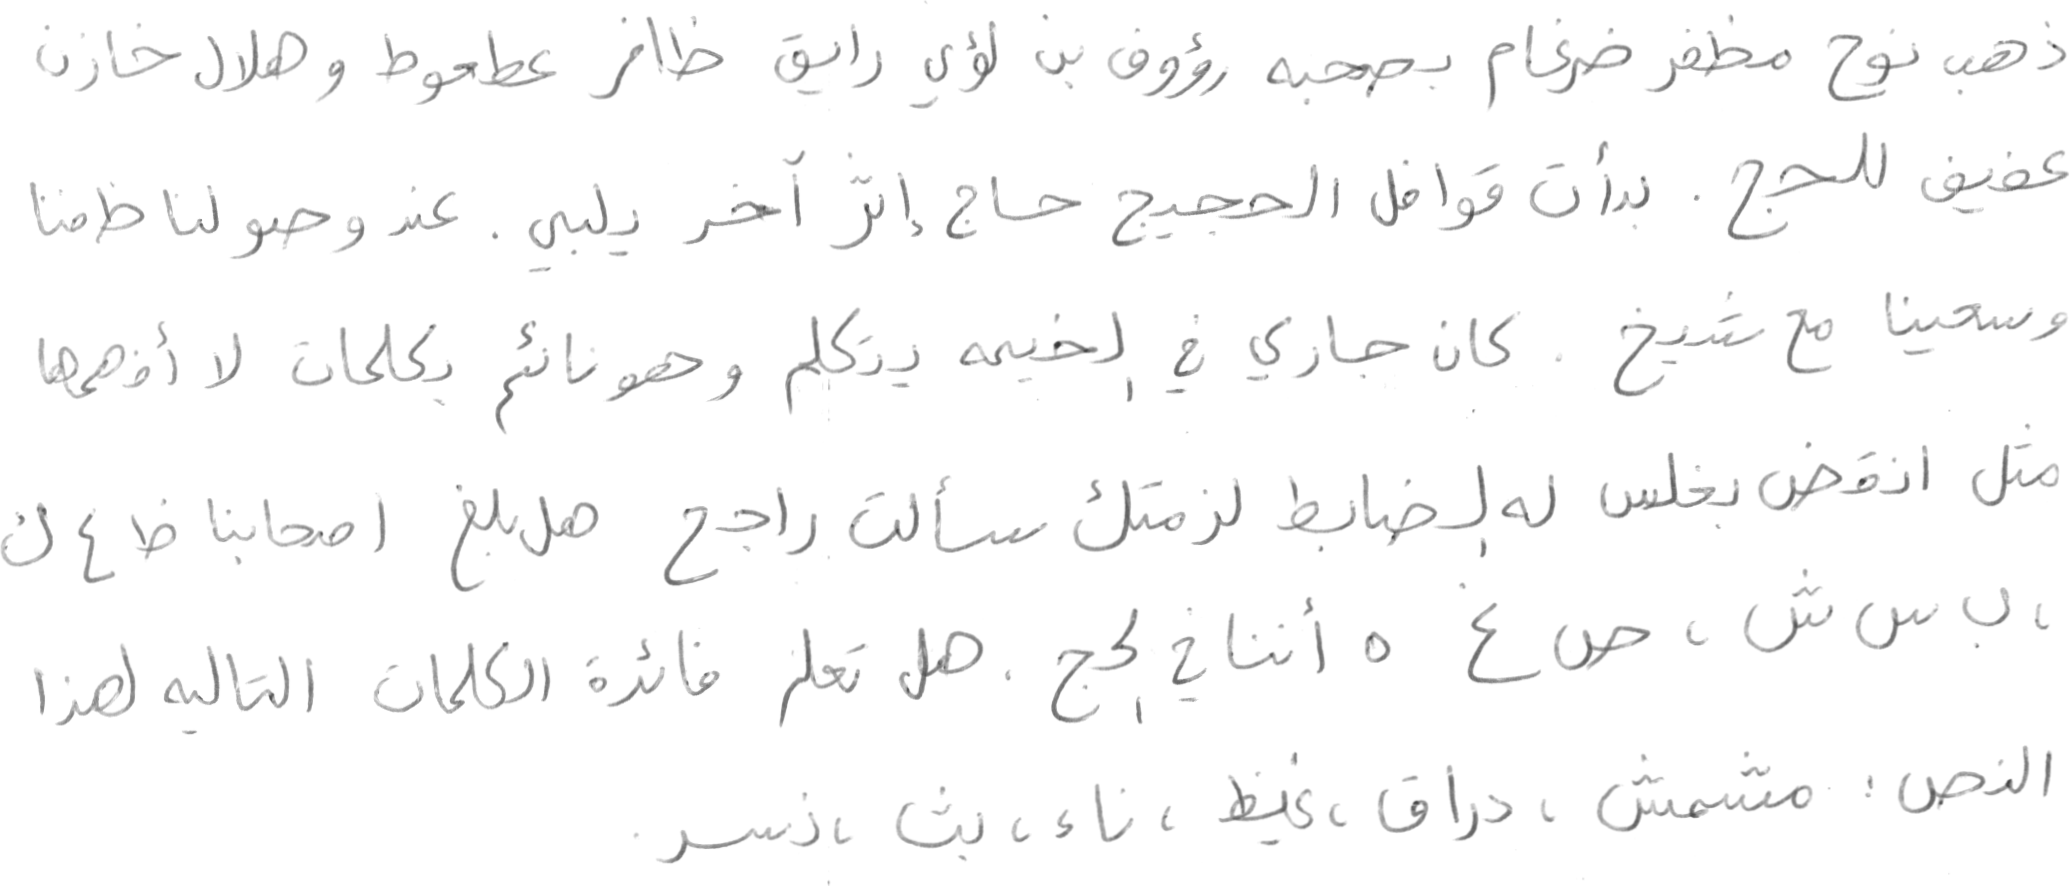 ذهب نوح مظفر ضرغام بصحبه رؤوف بن لؤي رايق ظافر عطعوط وهلال خازن
عفيف للحج . بدأت قوافل الحجيج حاج إثر آخر يلبي . عند وصولنا طفنا
وسعينا مع شيخ . كان جاري في الخيمه يتكلم وهو نائم بكلمات لا أفهمها
مثل انقض بغلس له الضابط لزمتك سألت راجح هل بلغ اصحابنا ظ ع ك
، ب س ش ، ص غ ه أننا في الحج . هل تعلم فائدة الكلمات التاليه لهذا
النص : مشمش ، دراق ، غيظ ، ناء ، بث ، نسر .